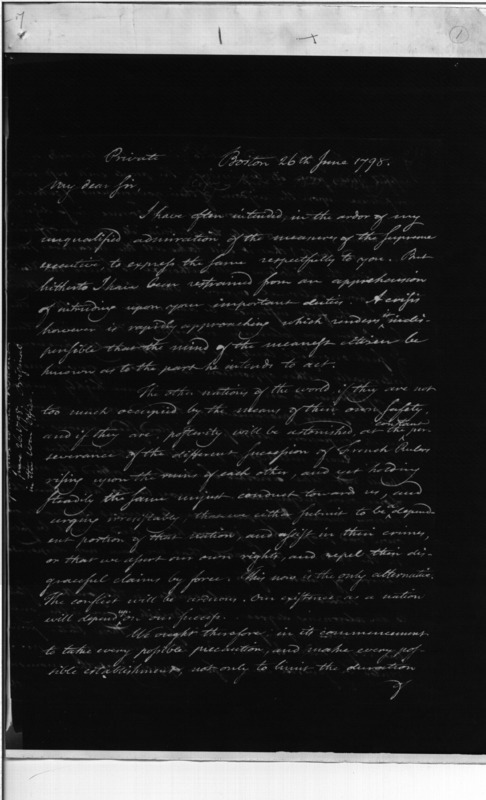 1
Private Boston 26th June 1798.
My dear Sir,
I have often intended, in the ardor of my
unqualified admiration of the measures of the Supreme
executive, to express the same respectfully to you. But
hitherto I have been restrained from an apprehension
of intruding upon your important duties. A crisis
however is rapidly approaching which renders it indis-
pensible that the mind of the meanest citizen be
known as to the part he intends to act.
The other nations of the world if they are not
too much occupied by the means of their own safety,
and if they are, posterity will be astonished at the constant per-
severance of the different succession of French Rulers
rising upon the ruins of each other, and yet holding
steadily the same unjust conduct toward us, and
urging irresistably, that we either submit to be a depend-
ent portion of that nation, and assist in their crimes,
or that we assert our own rights, and repel their dis-
graceful claims by force. This now is the only alternative.
The conflict will be arduous. Our existence as a nation
will depend upon our success.
We ought therefore, in its commencement
to take every possible precaution, and make every pos-
sible establishment, not only to limit the duration
of
June 26. 1798.
in the